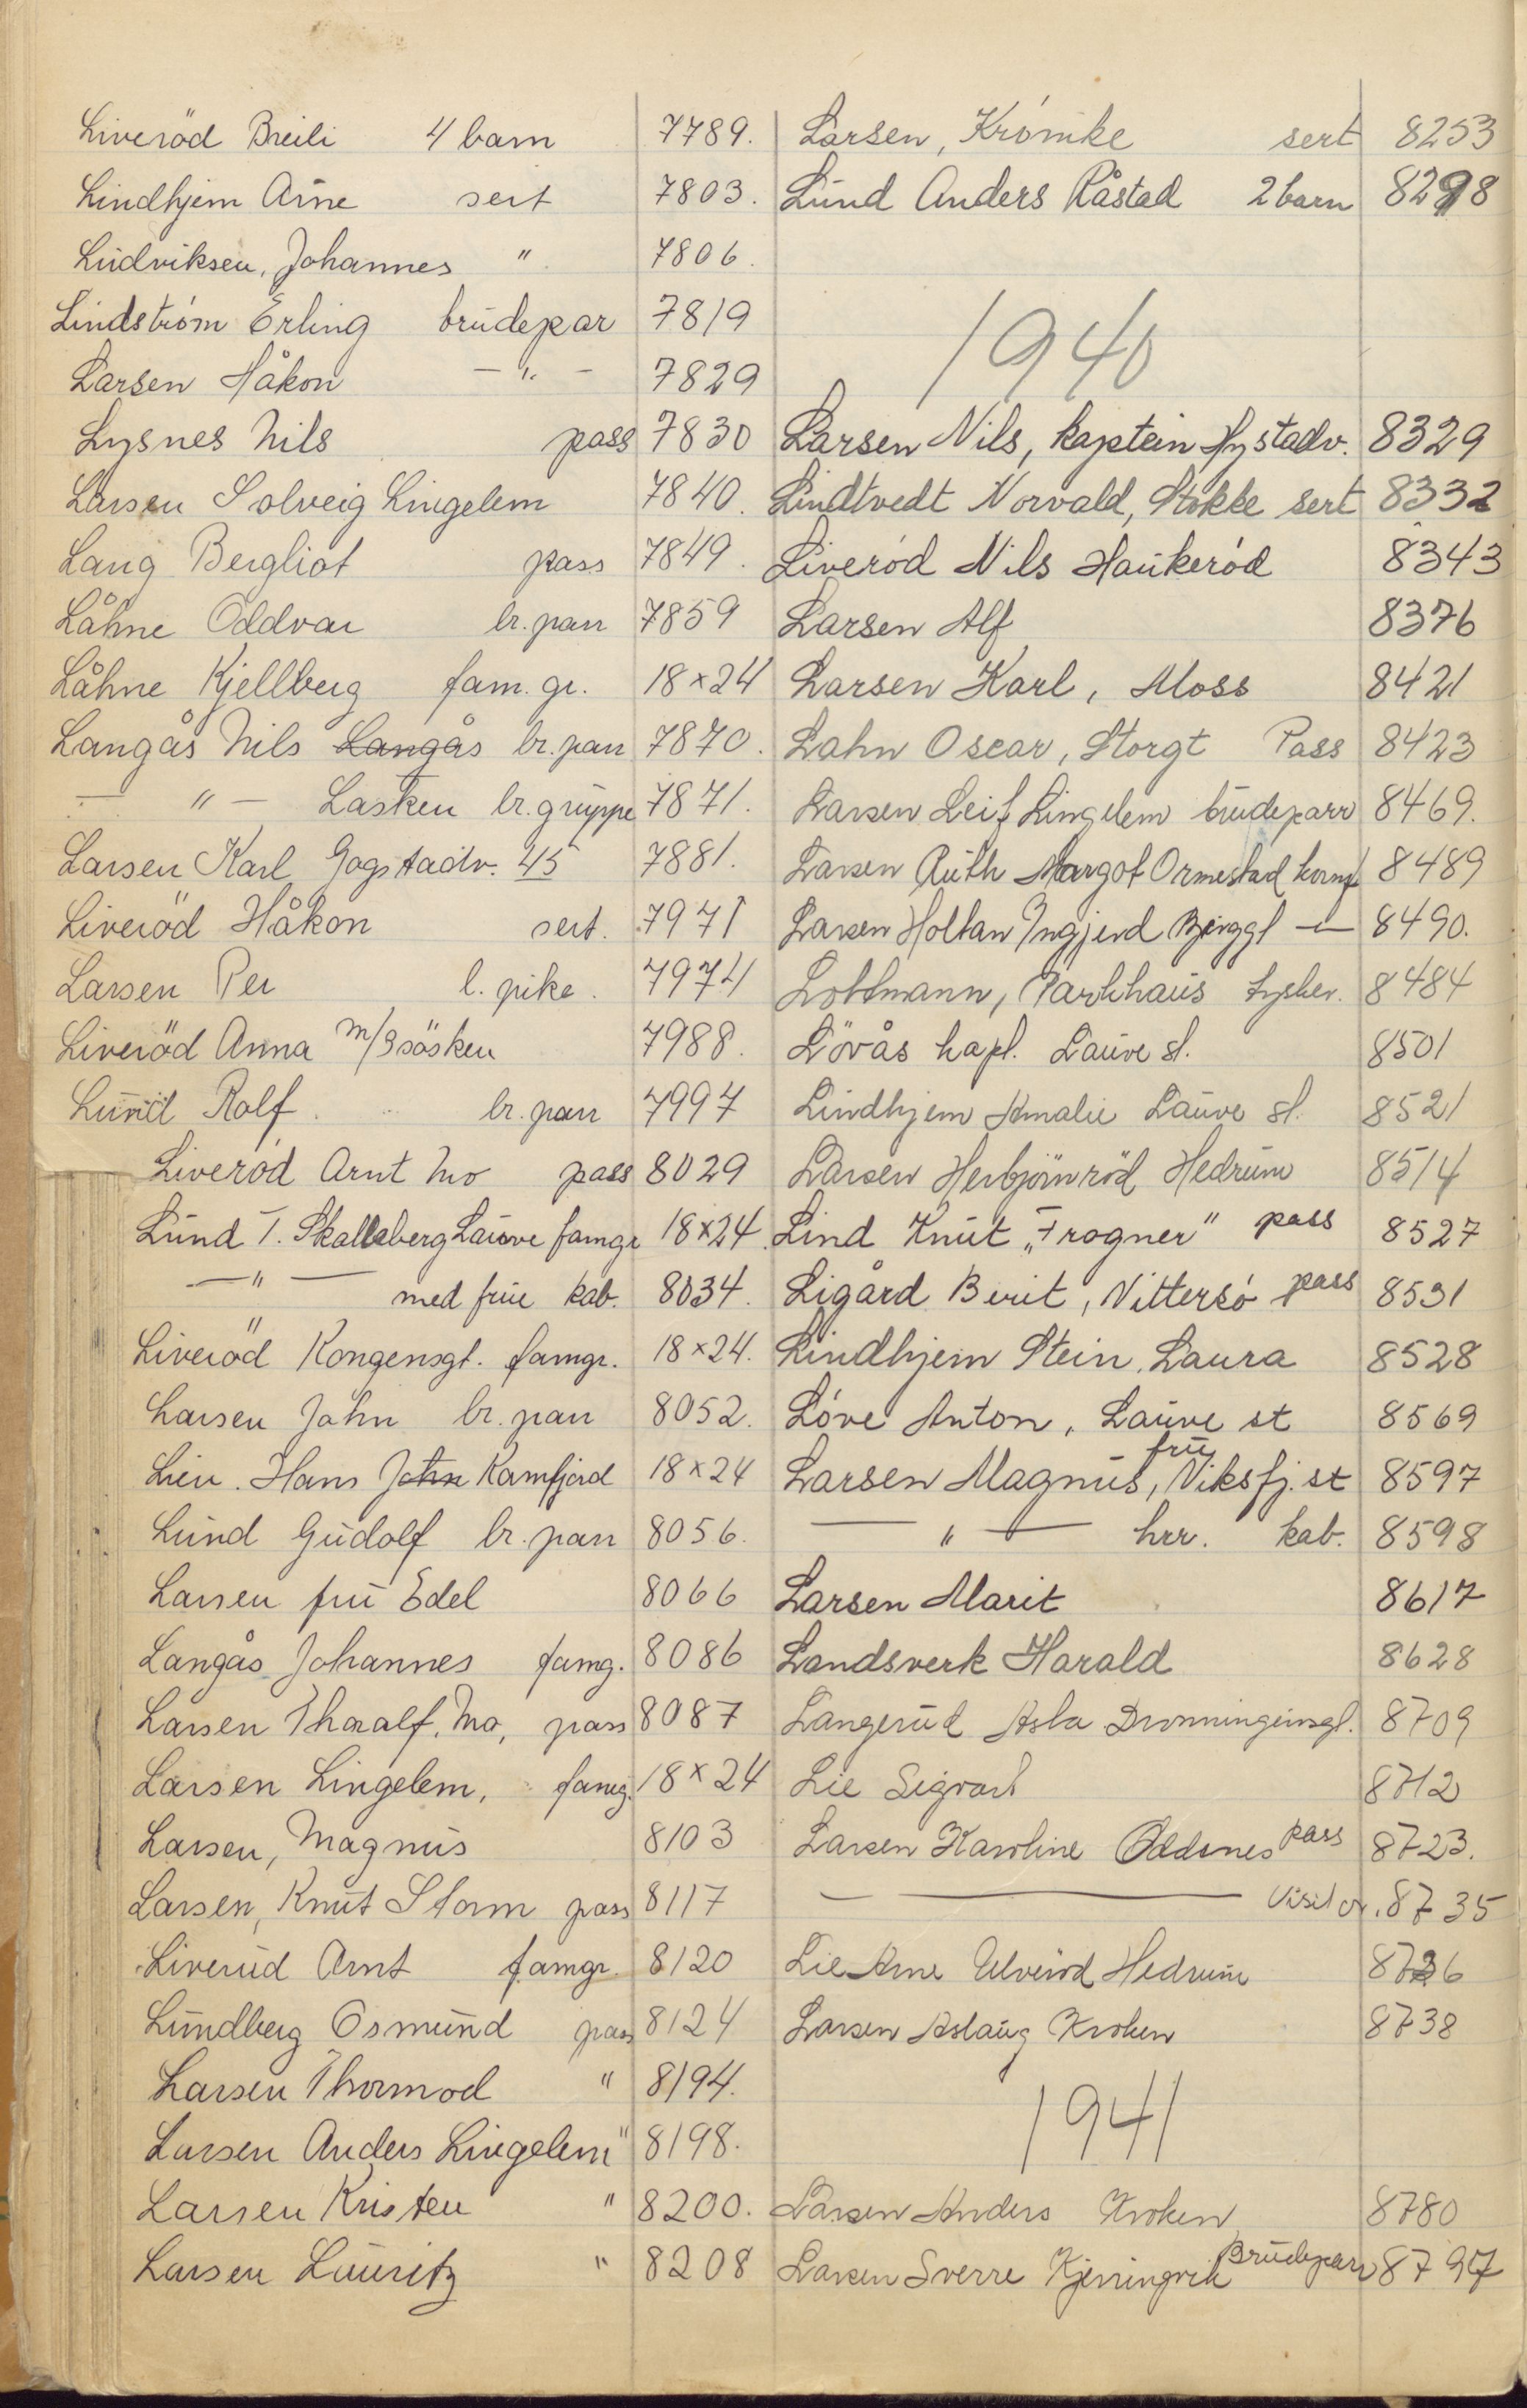 Liveröd Breili 4 barn 7789.
Lindhjem Arne sert 7803.
Ludviksen, Johannes " 7806.
Lindström Erling brudepar 7819
Larsen Håkon — " — 7829
Lysnes Nils pass 7830
Larsen Solveig Lingelem 7840.
Lang Bergliot pass 7849.
Låhne Oddvar br.parr 7859
Låhne Kjellberg fam.gr. 18×24
Langås Nils Langås br.parr 7870.
— " — Lasken br.gruppe 7871.
Larsen Karl Gogstadv. 45 7881.
Liveröd Håkon sert. 7971
Larsen Per l. pike. 7974
Liveröd Anna m/3 sösken 7988.
Lund Rolf br.parr 7997
Liveröd Arnt Mo pass 8029
Lund T. Skalleberg Lauve famgr 18×24
— " — med frue kab. 8034.
Liveröd Kongensgt. famgr. 18×24.
Larsen John br.parr 8052.
Lien. Hans John Kamfjord 18×24
Lund Gudolf br.parr 8056.
Larsen fru Edel 8066
Langås Johannes famg. 8086
Larsen Tharalf, Mo, pass 8087
Larsen Lingelem, famg. 18×24
Larsen, Magnus 8103
Larsen, Knut Storm pass 8117
Liverud Arnt famgr. 8120
Lundberg Osmund pass 8124
Larsen Thormod " 8194.
Larsen Anders Lingelem " 8198.
Larsen Kristen " 8200.
Larsen Lauritz " 8208
Larsen, Krömke sert 8253
Lund Anders Råstad 2 barn 8298
1940
Larsen Nils, kaptein Hystadv. 8329
Lindtvedt Norvald, Stokke sert 8332
Liveröd Nils Haukeröd 8343
Larsen Alf 8376
Larsen Karl, Moss 8421
Lahn Oscar, Storgt Pass 8423
Larsen Leif Lingelem brudeparr 8469.
Larsen Ruth Margot Ormestad konf 8489
Larsen Holtan Ingjerd Bjerggt — " — 8490.
Lottmann, Parkhaus tysker. 8484
Lövås kapt. Lauve st. 8501
Lindhjem Amalie Lauve st. 8521
Larsen Herbjörnröd Hedrum 8514
Lind Knut „Frogner" pass 8527
Ligård Berit, Vittersö pass 8531
Lindhjem Stein, Laura 8528
Löve Anton, Lauve st 8569
Larsen Magnus, fru Viksfj. st 8597
— " — hrr. kab. 8598
Larsen Marit 8617
Landsverk Harald 8628
Langerud Asla Dronningensgt. 8709
Lie Sigvart 8712
Larsen Karoline Oddsnes pass 8723.
— Visit or. 8735
Lie Arne Ulveröd Hedrum 8736
Larsen Aslaug Kroken 8738
1941
Larsen Anders Kroken 8780
Larsen Sverre Kjerringvik Brudeparr 8797